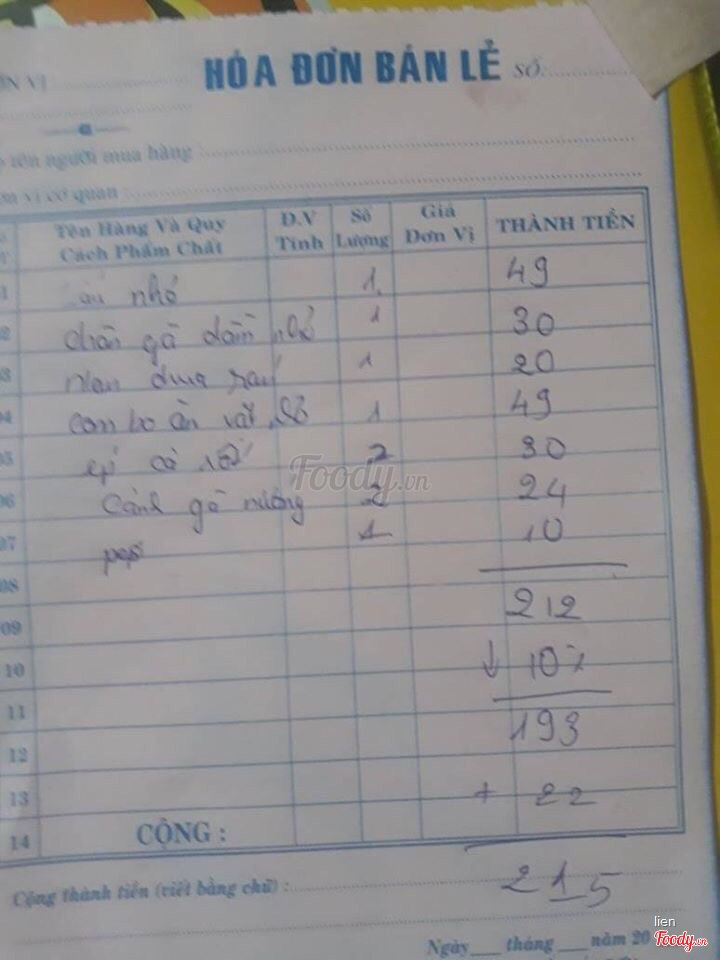 HÓA ĐƠN BÁN LẺ SỐ:
tên người mua hàng :
vị cơ quan :
Tên Hàng Và Quy Cách Phẩm Chất Đ.V Tính Số Lượng Giá Đơn Vị THÀNH TIỀN
nhỏ 1 49
chân gà 1 30
1 20
combo ăn vặt 1 49
2 30
06 Cánh gà nướng 2 24
07 1 10
08 212
09
10 ↓ 10%
11 193
12
13 + 22
14 CỘNG :
Cộng thành tiền (viết bằng chữ) : 215
Ngày tháng năm 20
Foody.vn
lien
Foody.vn